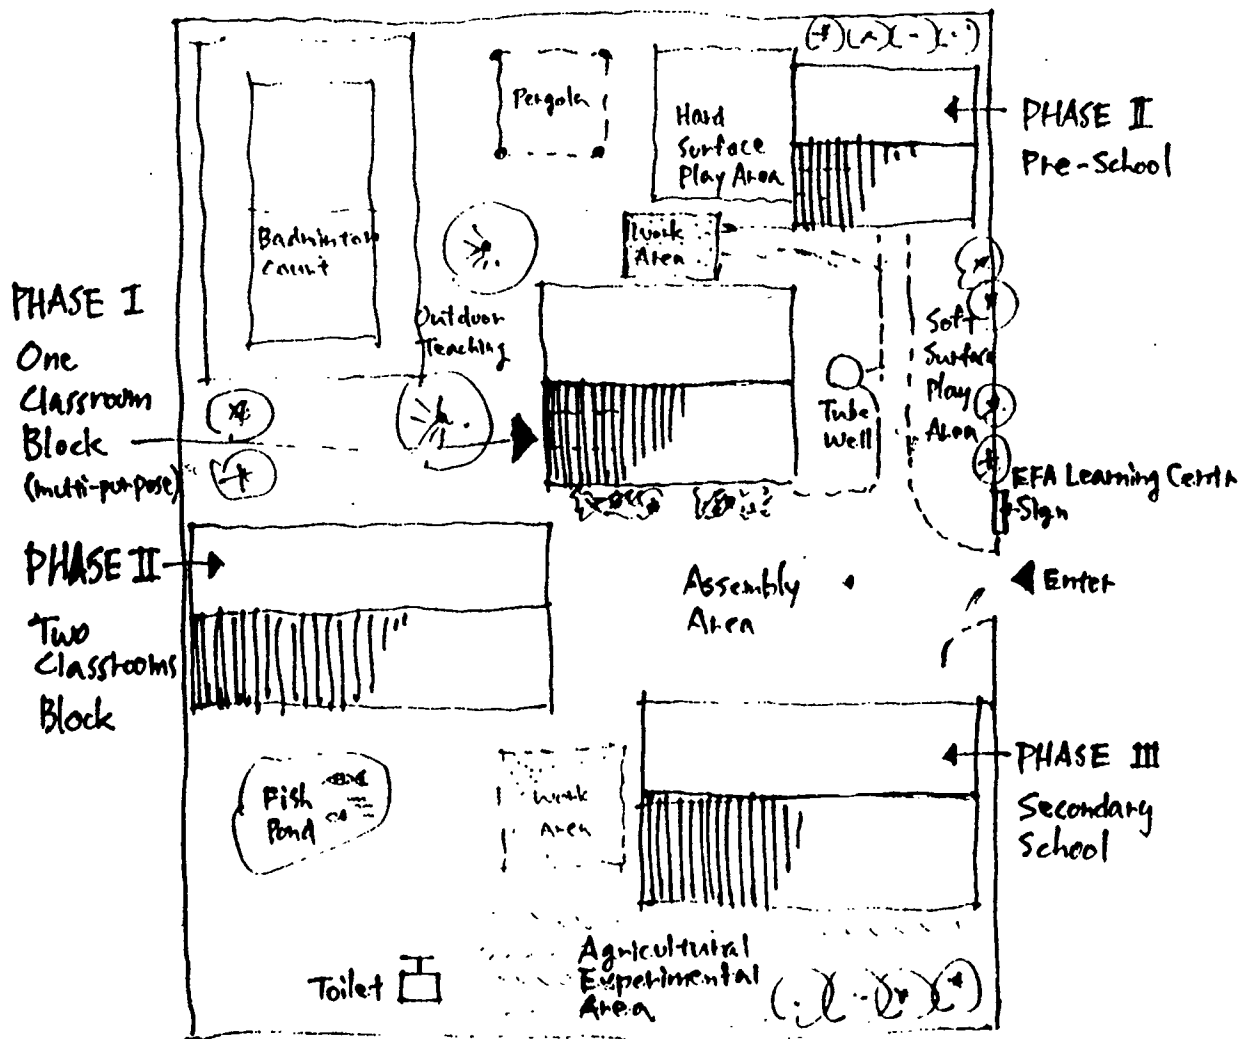 Pergola
Hard
Surface
Play Area
PHASE II
Pre-School
Badminton
Court
Work
Area
PHASE I
One
Classroom
Block
(multi-purpose)
Outdoor
Teaching
Tube
Well
Soft
Surface
Play
Area
EFA Learning Centr
Sign
PHASE II
Two
Classrooms
Block
Assembly
Area
Enter
PHASE III
Secondary
School
Fish
Pond
Work
Area
Toilet
Agricultural
Experimental
Area